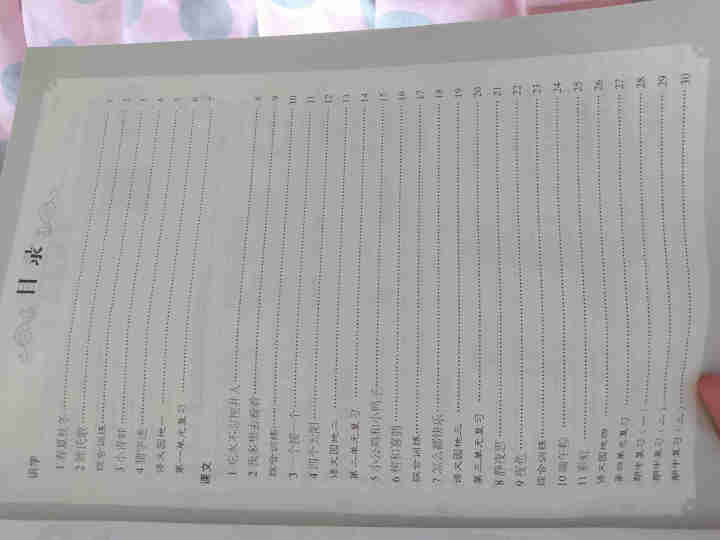 目 录
识字
1 春夏秋冬 1
2 姓氏歌 2
综合训练 3
3 小青蛙 4
4 猜字谜 5
语文园地一 6
第一单元复习 7
课文
1 吃水不忘挖井人 8
2 我多想去看看 9
综合训练 9
3 一个接一个 10
4 四个太阳 11
语文园地二 12
第二单元复习 13
5 小公鸡和小鸭子 14
6 树和喜鹊 15
综合训练 16
7 怎么都快乐 17
语文园地三 18
第三单元复习 19
8 静夜思 20
9 夜色 21
综合训练 22
10 端午粽 23
11 彩虹 24
语文园地四 25
第四单元复习 26
期中复习（一） 27
期中复习（二） 28
期中复习（三） 29
30